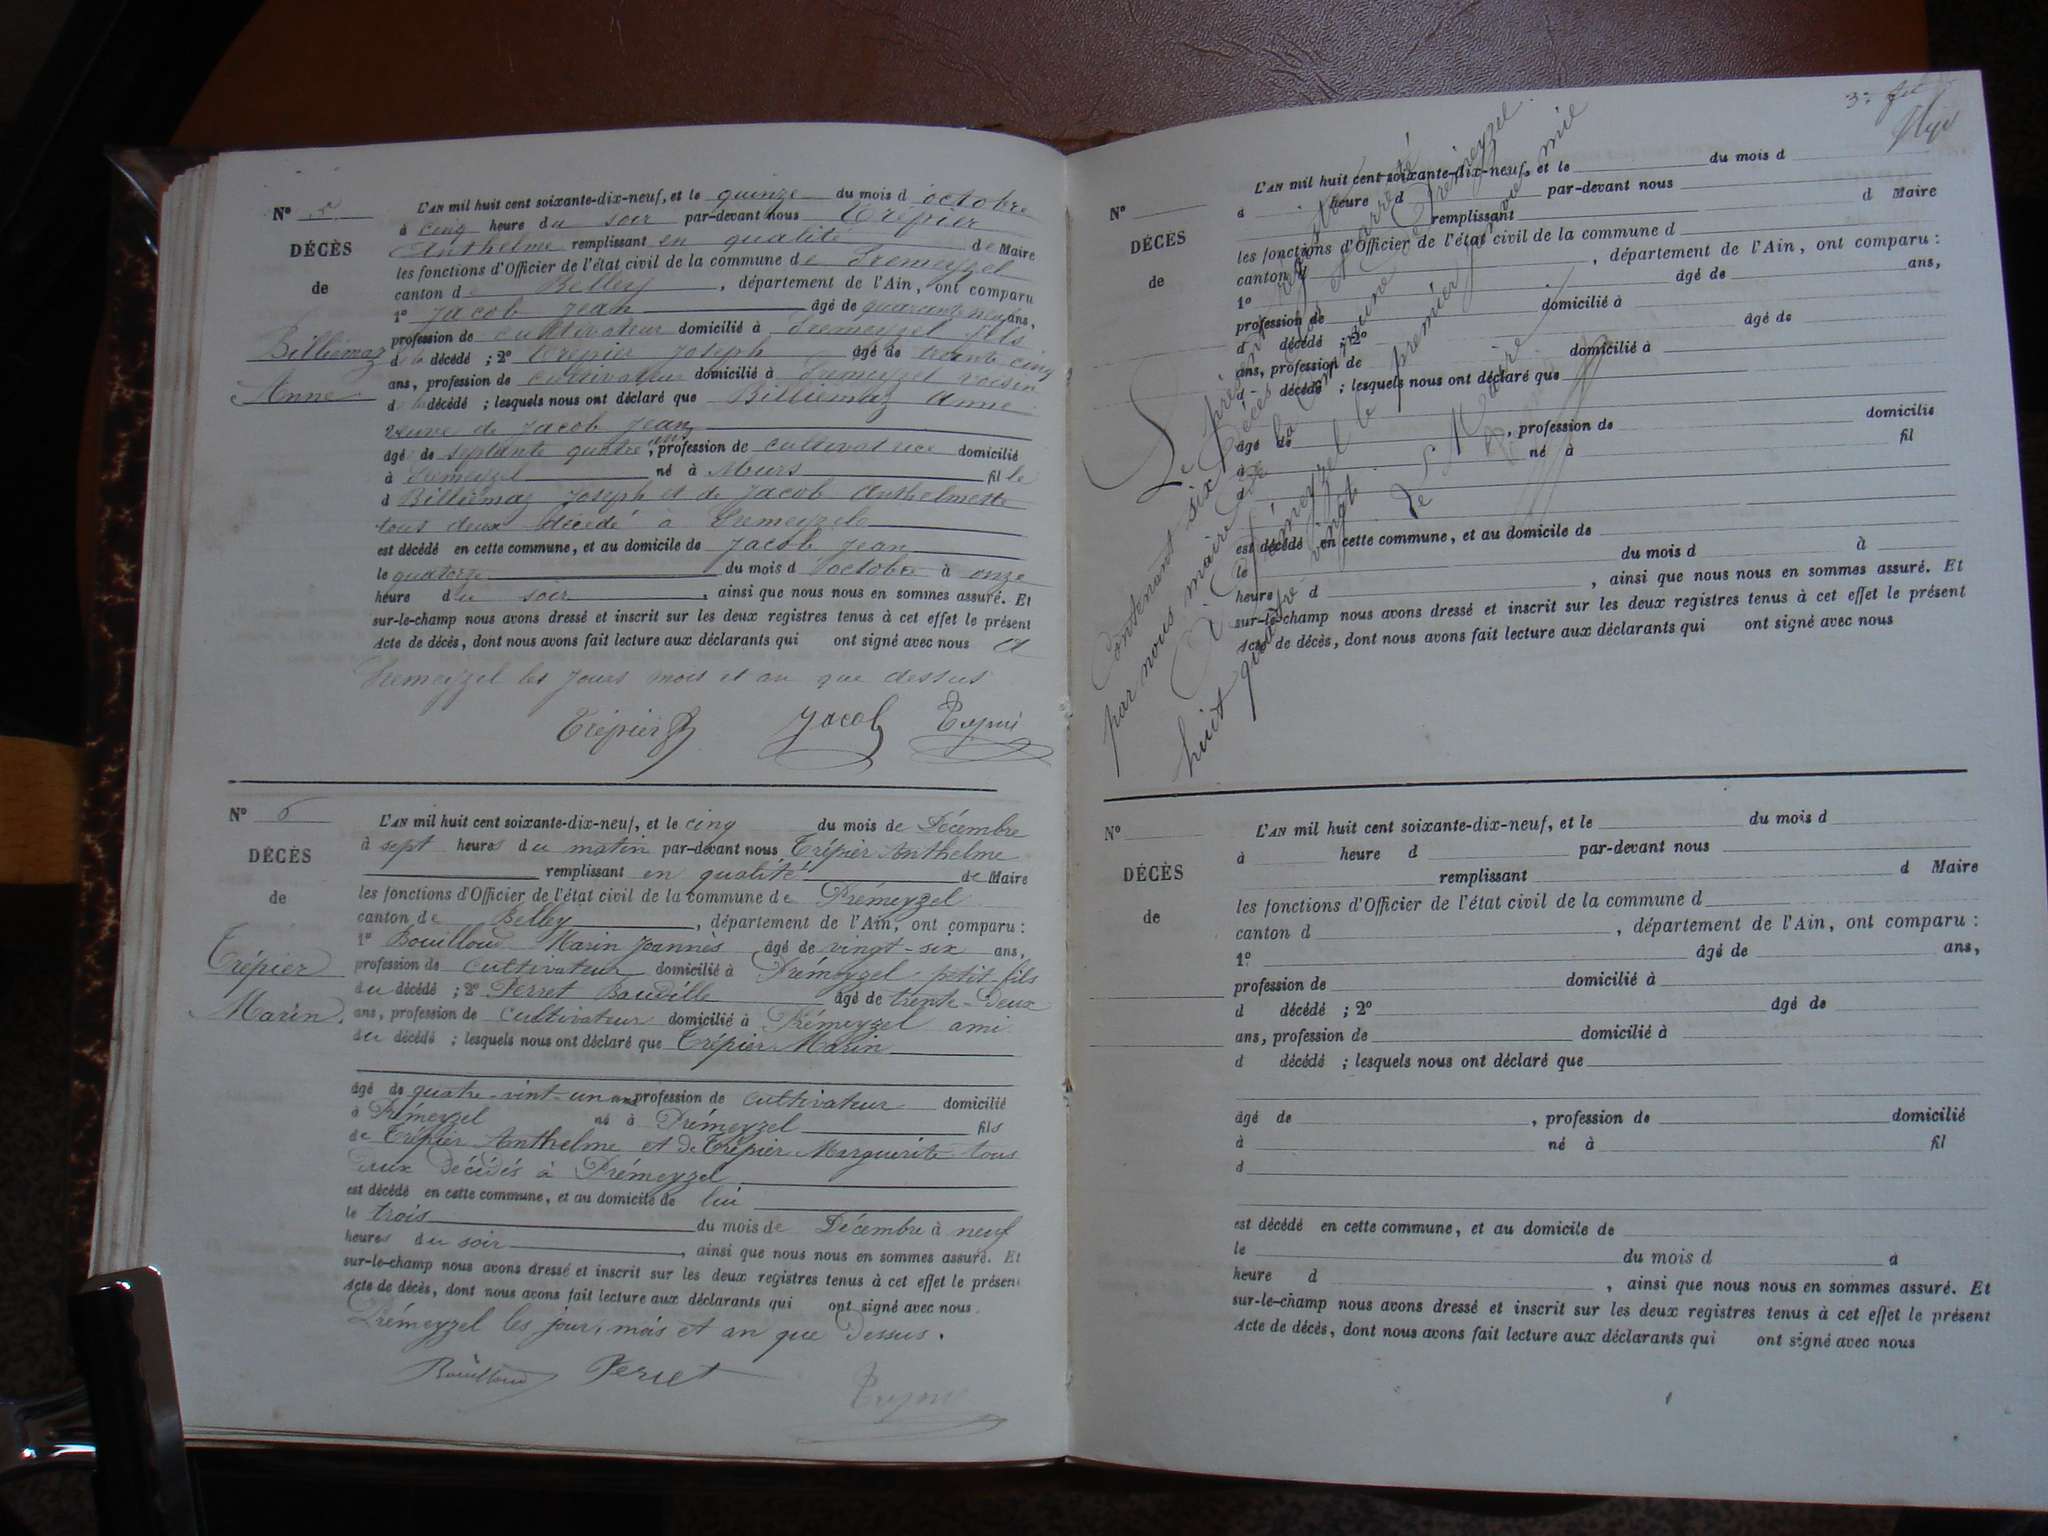 N° 5
DÉCÈS
de
Billiémaz
Anne
L'AN mil huit cent soixante-dix-neuf, et le quinze du mois d octobre
à cinq heure du soir par-devant nous Trépier
Anthelme remplissant en qualité de Maire
les fonctions d'Officier de l'état civil de la commune de Premeyzel
canton de Belley, département de l'Ain, ont comparu
1° Jacob Jean âgé de quarante neuf ans,
profession de cultivateur domicilié à Premeyzel fils
d la décédé ; 2° Trépier Joseph âgé de trente cinq
ans, profession de cultivateur domicilié à Premeyzel voisin
d la décédé ; lesquels nous ont déclaré que Billiemaz Anne
veuve de Jacob Jean
âgé de septante quatre ans, profession de cultivatrice domicilié
à Premeyzel né à Murs fille
d Billiémaz Joseph et de Jacob Anthelmette
tous deux décédé à Premeyzel
est décédé en cette commune, et au domicile de Jacob Jean
le quatorze du mois d'octobre à onze
heure du soir, ainsi que nous nous en sommes assuré. Et
sur-le-champ nous avons dressé et inscrit sur les deux registres tenus à cet effet le présent
Acte de décès, dont nous avons fait lecture aux déclarants qui ont signé avec nous a
Premeyzel les jours mois et an que dessus
Trépier Jacob
N° 6
DÉCÈS
de
Trépier
Marin.
L'AN mil huit cent soixante-dix-neuf, et le cinq du mois de Décembre
à sept heures du matin par-devant nous Trépier Anthelme
remplissant en qualité de Maire
les fonctions d'Officier de l'état civil de la commune de Prémeyzel
canton de Belley, département de l'Ain, ont comparu :
1° Bouilloud Marin Joannès âgé de vingt-six ans,
profession de cultivateur domicilié à Prémeyzel petit fils
du décédé ; 2° Perret Baudille âgé de trente-deux
ans, profession de cultivateur domicilié à Prémeyzel ami
du décédé ; lesquels nous ont déclaré que Trépier Marin
âgé de quatre-vint-un ans profession de cultivateur domicilié
à Prémeyzel né à Prémeyzel fils
de Trépier Anthelme et de Trépier Marguerite tous
deux décédés à Prémeyzel
est décédé en cette commune, et au domicile de lui
le trois du mois de Décembre à neuf
heures du soir, ainsi que nous nous en sommes assuré. Et
sur-le-champ nous avons dressé et inscrit sur les deux registres tenus à cet effet le présent
Acte de décès, dont nous avons fait lecture aux déclarants qui ont signé avec nous.
Prémeyzel les jour, mois et an que dessus.
Bouilloud Perret
N°
DÉCÈS
de
L'AN mil huit cent soixante-dix-neuf, et le du mois d
à heure d par-devant nous
remplissant d Maire
les fonctions d'Officier de l'état civil de la commune d
canton d , département de l'Ain, ont comparu :
1° âgé de ans,
profession de domicilié à
d décédé ; 2° âgé de
ans, profession de domicilié à
d décédé ; lesquels nous ont déclaré que
âgé de , profession de domicilié
à né à fil
d
est décédé en cette commune, et au domicile de
le du mois d à
heure d , ainsi que nous nous en sommes assuré. Et
sur-le-champ nous avons dressé et inscrit sur les deux registres tenus à cet effet le présent
Acte de décès, dont nous avons fait lecture aux déclarants qui ont signé avec nous
Le présent registre
Contenant six Décès clos et arrêté
par nous maire de la Commune de Prémeyzel
A Prémeyzel le premier janvier mil
huit quatre vingt
Le Maire
N°
DÉCÈS
de
L'AN mil huit cent soixante-dix-neuf, et le du mois d
à heure d par-devant nous
remplissant d Maire
les fonctions d'Officier de l'état civil de la commune d
canton d , département de l'Ain, ont comparu :
1° âgé de ans,
profession de domicilié à
d décédé ; 2° âgé de
ans, profession de domicilié à
d décédé ; lesquels nous ont déclaré que
âgé de , profession de domicilié
à né à fil
d
est décédé en cette commune, et au domicile de
le du mois d à
heure d , ainsi que nous nous en sommes assuré. Et
sur-le-champ nous avons dressé et inscrit sur les deux registres tenus à cet effet le présent
Acte de décès, dont nous avons fait lecture aux déclarants qui ont signé avec nous